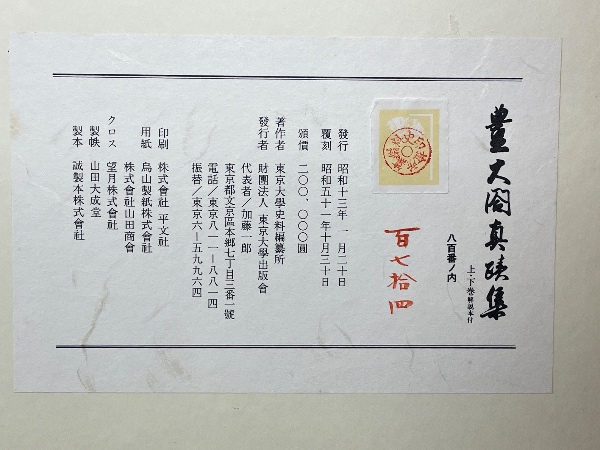 豊大閤真蹟集
上・下巻解説本付
八百番ノ内
百七拾四
發行 昭和十三年 一月二十日
覆刻 昭和五十一年十月三十日
頒價 二〇〇、〇〇〇圓
著作者 東京大學史料編纂所
發行者 財團法人 東京大學出版會
代表者／加藤一郎
東京都文京區本郷七丁目三番一號
電話／東京八一一―八八一四
振替／東京六―五九九六四
印刷 株式會社 平文社
用紙 烏山製紙株式會社
株式會社山田商會
クロス 望月株式會社
製帙 山田大成堂
製本 誠製本株式會社